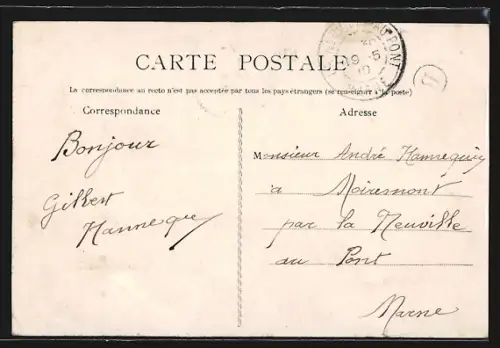 CARTE POSTALE
La correspondance au recto n'est pas acceptée par tous les pays étrangers (se renseigner à la poste)
Correspondance
Adresse
Bonjour
Gilbert
Hannequin
Monsieur André Hannequin
à Moiremont
par la Neuville
au Pont
Marne
AU PONT
19 -5
11